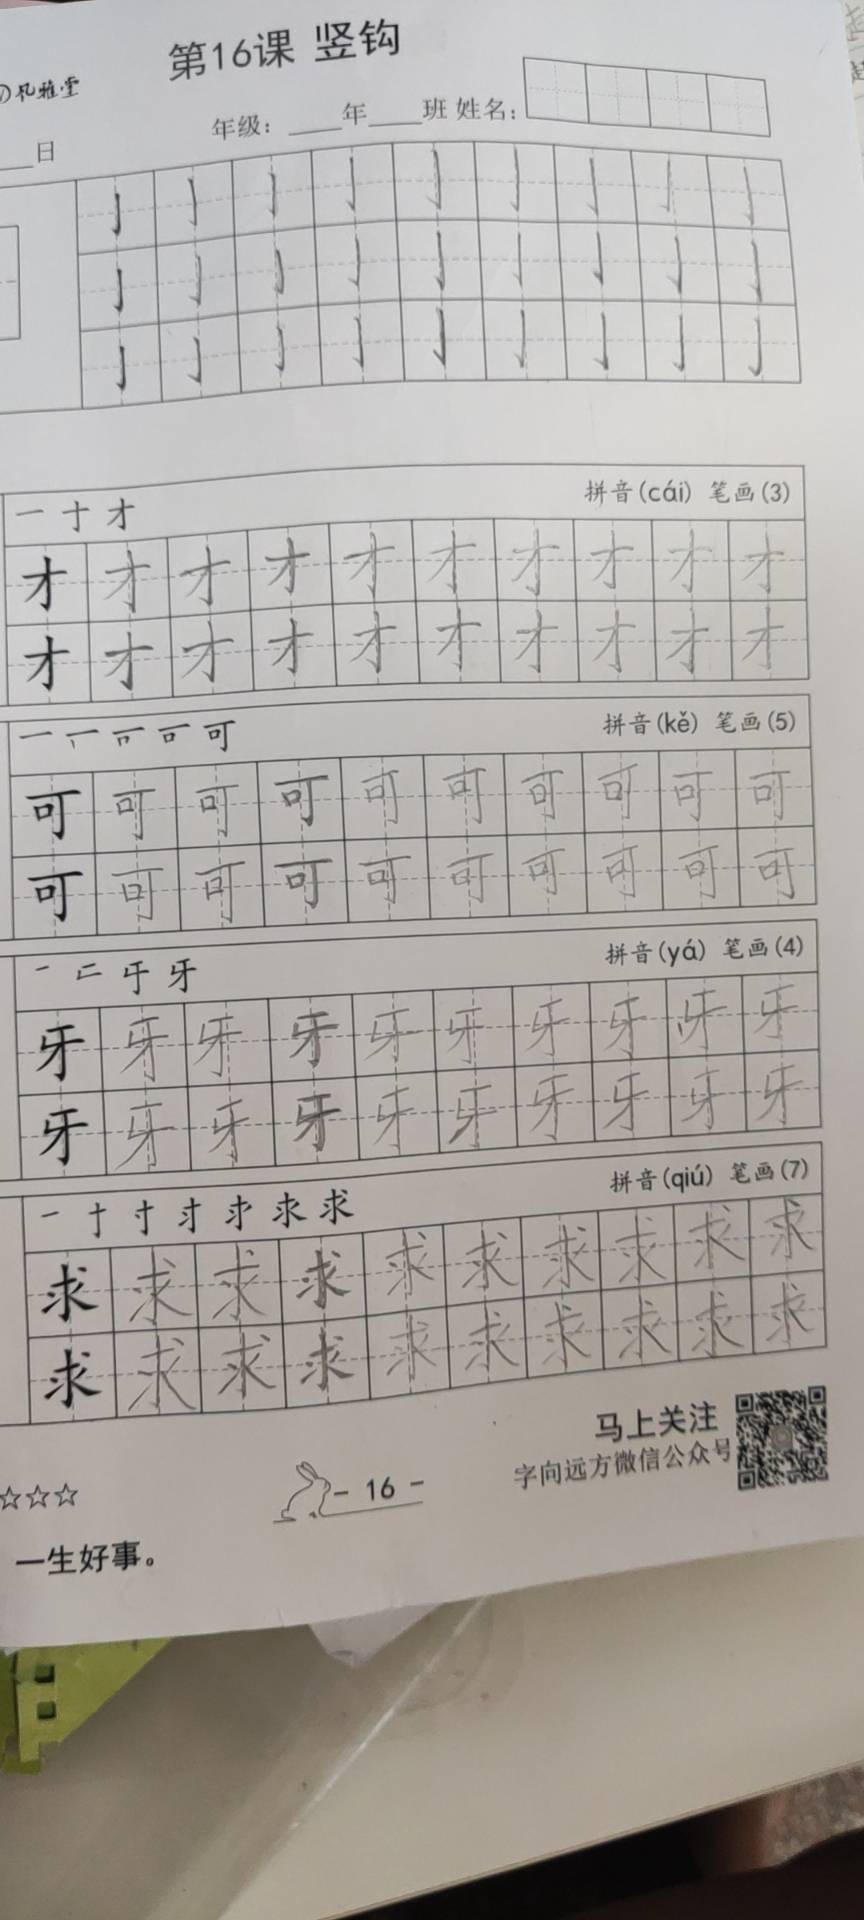 第16课 竖钩
风雅堂
年级：____年____班 姓名：
____日
亅亅亅亅亅亅亅亅亅
亅亅亅亅亅亅亅亅亅
亅亅亅亅亅亅亅亅亅
一 十 才 拼音(cái) 笔画(3)
才才才才才才才才才才
才才才才才才才才才才
拼音(kě) 笔画(5)
可可可可可可可可可可
可可可可可可可可可可
拼音(yá) 笔画(4)
牙牙牙牙牙牙牙牙牙牙
牙牙牙牙牙牙牙牙牙牙
拼音(qiú) 笔画(7)
求求求求求求求求求求
求求求求求求求求求求
马上关注
字向远方微信公众号
☆☆☆
- 16 -
一生好事。